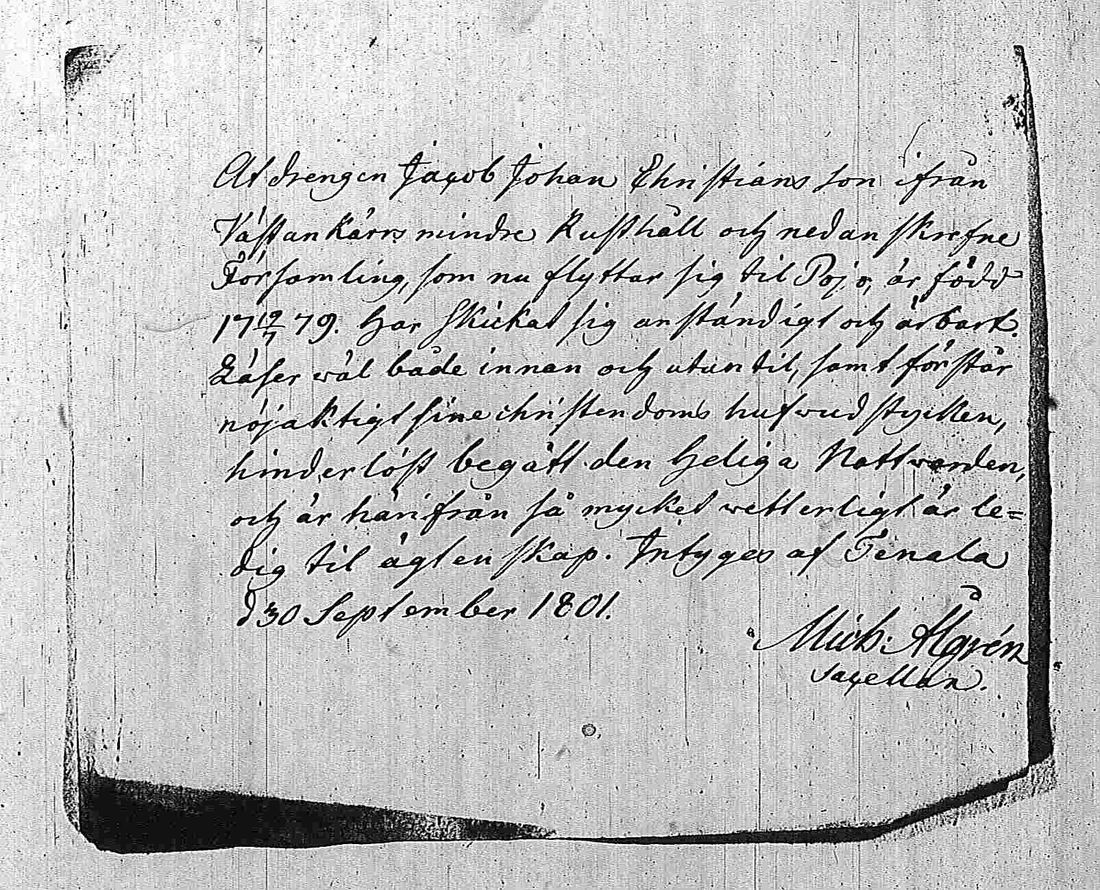 At drengen Jacob Johan Christians son ifrån
Västankärrs mindre Rusthåll och nedanskrefne
Församling, som nu flyttar sig til Pojo, är född
17 19/7 79. Har Skickat sig anständigt och ärbart.
Läser wäl både innan och utantil, samt förstår
nöjaktigt sine christendoms hufwudstycken,
hinderlöst begått den Heliga Nattwarden,
och är härifrån så mycket wetterligt är le=
dig til ägtenskap. Intyges af Tenala
d 30 September 1801.
Mich: Algrén
Sacellan.